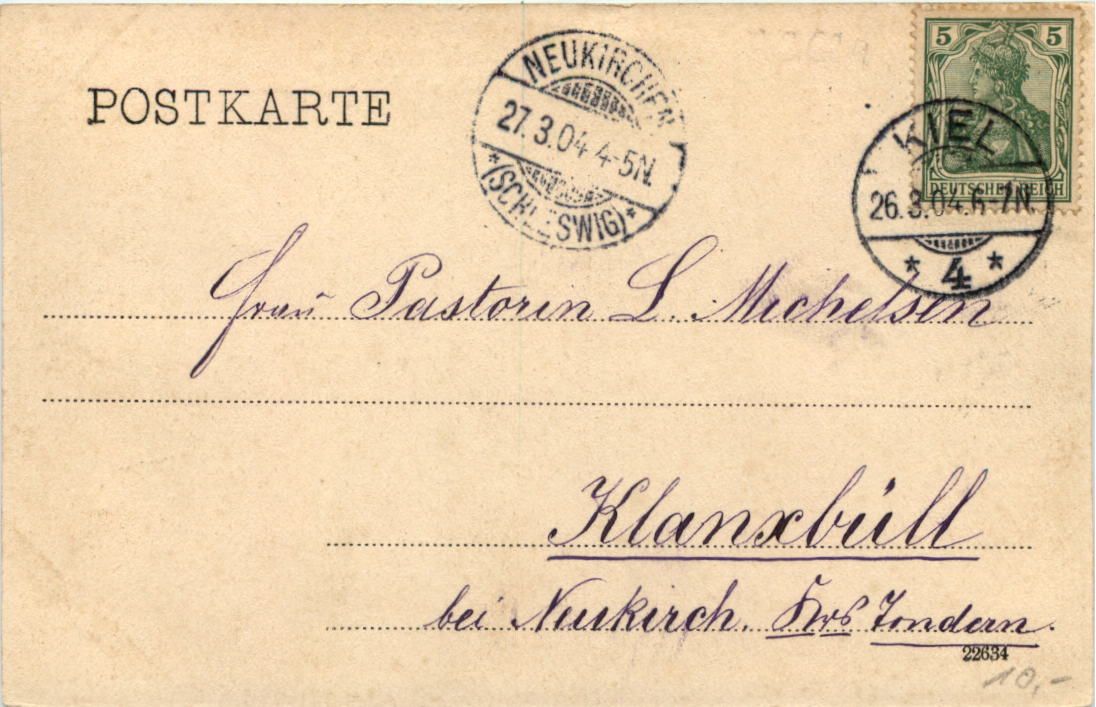 POSTKARTE
NEUKIRCHEN
27.3.04 4-5N.
*(SCHLESWIG)*
5 5
DEUTSCHES REICH
KIEL
26.3.04.6-7N.
* 4 *
Frau Pastorin L. Michelsen
Klanxbüll
bei Neukirch. Krs Tondern.
22634
10,-